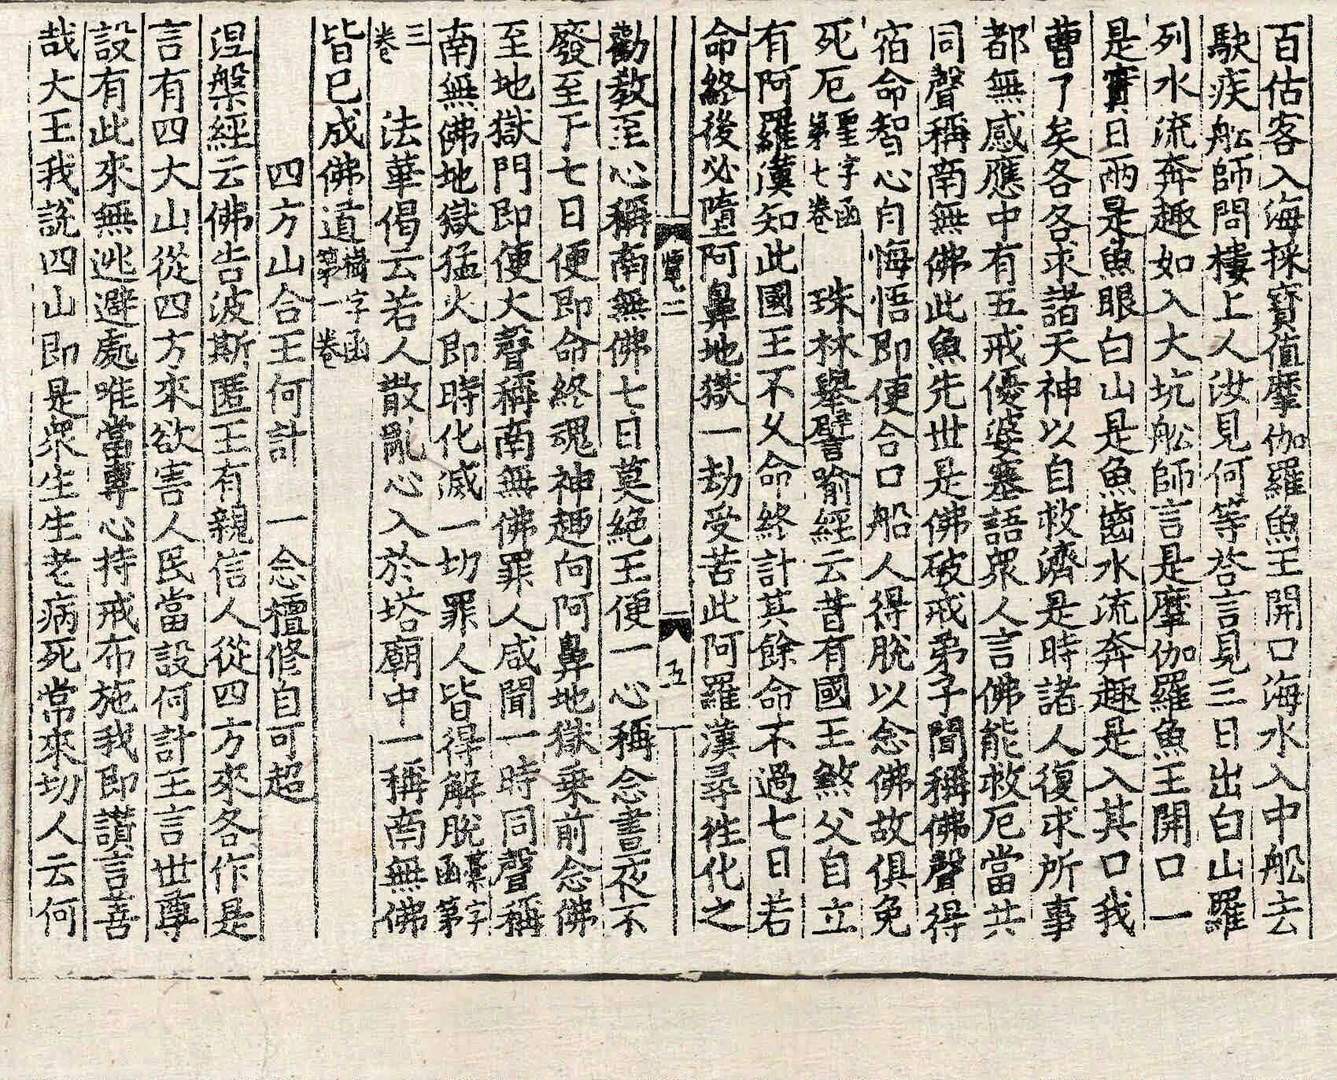 百估客入海採寶值摩伽羅魚王開口海水入中舩去
駃疾舩師問樓上人汝見何等荅言見三日出白山羅
列水流奔趣如入大坑舩師言是摩伽羅魚王開口一
是實日兩是魚眼白山是魚齒水流奔趣是入其口我
曹了矣各各求諸天神以自救濟是時諸人復求所事
都無感應中有五戒優婆塞語衆人言佛能救厄當共
同聲稱南無佛此魚先世是佛破戒弟子聞稱佛聲得
宿命智心自悔悟即便合口船人得脫以念佛故俱免
死厄聖字函第七卷　珠林舉譬喻經云昔有國王煞父自立
有阿羅漢知此國王不久命終計其餘命不過七日若
命終後必墮阿鼻地獄一劫受苦此阿羅漢尋徃化之
覽二　五
勸教至心稱南無佛七日莫絕王便一心稱念晝夜不
廢至于七日便即命終魂神趣向阿鼻地獄乗前念佛
至地獄門即便大聲稱南無佛罪人咸聞一時同聲稱
南無佛地獄猛火即時化滅一切罪人皆得解脫藁字函第
三卷　法華偈云若人散亂心入於塔廟中一稱南無佛
皆已成佛道樹字函第一卷
四方山合王何計　一念檀修自可超
涅槃經云佛告波斯匿王有親信人從四方來各作是
言有四大山從四方來欲害人民當設何計王言世尊
設有此來無逃避處唯當專心持戒布施我即讃言善
哉大王我說四山即是衆生生老病死常來切人云何